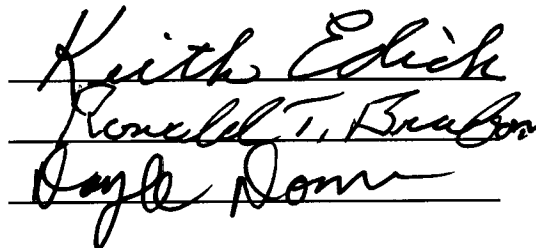 Keith Edick
Ronald T. Brabon
Doyle Dorn